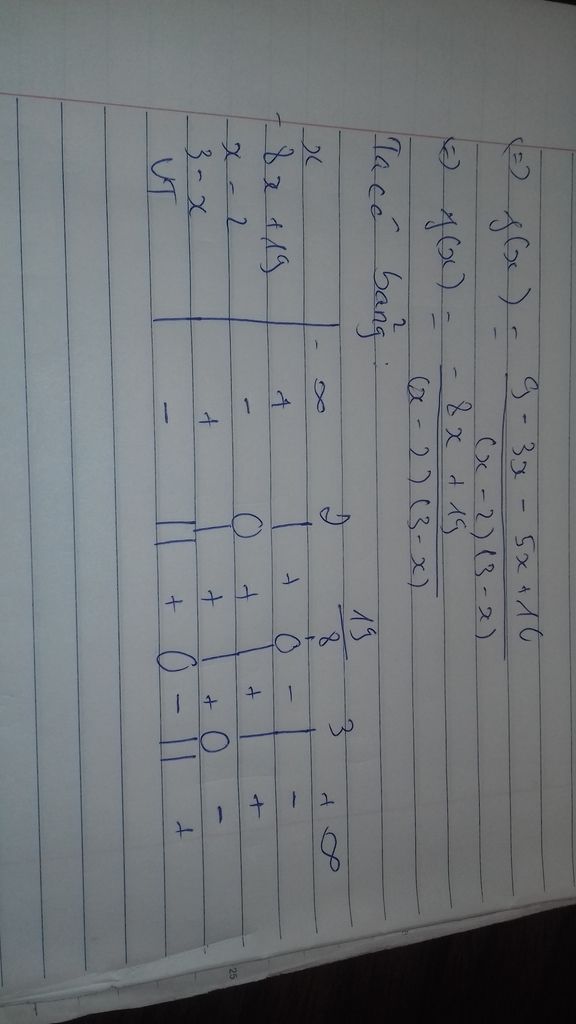 (=) f(x) = 9 - 3x - 5x + 10 / (x - 2)(3 - x)
(=) f(x) = - 8x + 19 / (x - 2)(3 - x)
Ta có bảng :
x | - ∞ 2 19/8 3 + ∞
- 8x + 19 | + | + 0 - | -
x - 2 | - 0 + | + | +
3 - x | + | + | + 0 -
VT | - || + 0 - || +
25